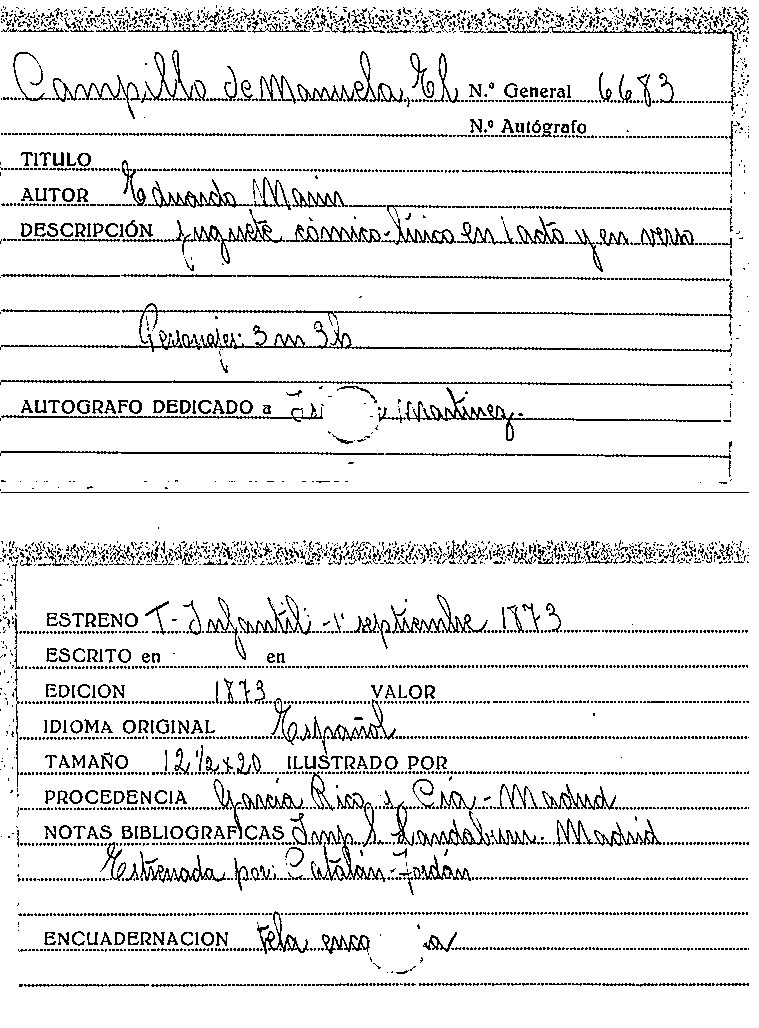 Campillo de Manuela, El N.º General 6683
N.º Autógrafo
TITULO
AUTOR Eduardo Marin
DESCRIPCIÓN Juguete cómico-lírico en 1 acto y en verso
Personajes: 3 m 3 h
AUTOGRAFO DEDICADO a Martinez.
ESTRENO T. Infantil - 1º septiembre 1873
ESCRITO en en
EDICION 1873 VALOR
IDIOMA ORIGINAL Español
TAMAÑO 12 1/2 x 20 ILUSTRADO POR
PROCEDENCIA García Rico y Cía - Madrid
NOTAS BIBLIOGRAFICAS Imp. S. Landaburu. Madrid
Estrenada por: Catalán-Jordán
ENCUADERNACION tela